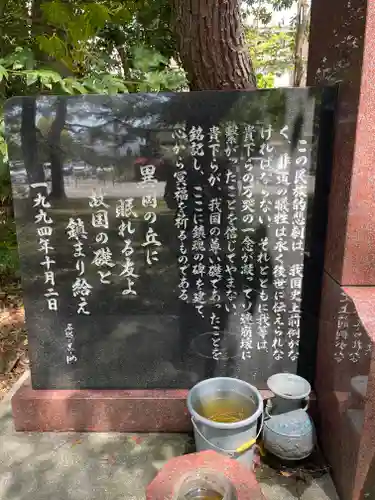 この民族的悲劇は、我国史上前例がな
く、非道の犠牲は永く後世に伝えられな
ければならない。それとともに我等は
貴下らの万斛の一念が凝ってソ連崩壊に
繋がったことを信じてやまない。
貴下らが、我国の尊い礎であったことを
銘記し、ここに鎮魂の碑を建て、
心から冥福を祈るものである。
黒岡の丘に
眠れる友よ
故国の礎と
鎮まり給え
一九九四年十月二日